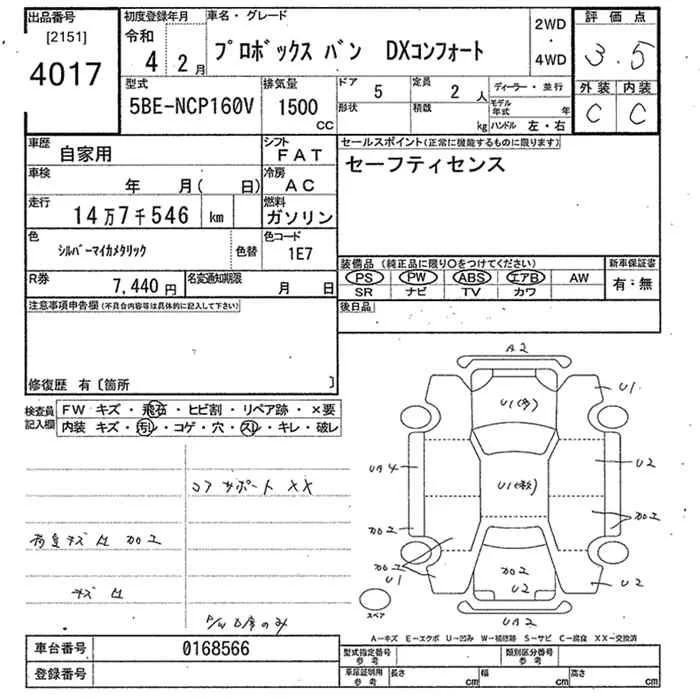 出品番号
[2151]
4017
初度登録年月
令和
4 2月
車名・グレード
プロボックス バン DXコンフォート
2WD
・
4WD
評価点
3.5
外装 内装
C C
型式
5BE-NCP160V
排気量
1500
CC
ドア
5
定員
2人
形状
積載
kg
ディーラー・並行
モデル年式 年
ハンドル 左・右
車歴
自家用
シフト
FAT
セールスポイント(正常に機能するものに限ります)
セーフティセンス
車検
年 月( 日)
冷房
AC
走行
14万7千546 km
燃料
ガソリン
色
シルバーマイカメタリック
色替
色コード
1E7
装備品(純正品に限り○をつけてください)
PS PW ABS エアB AW
SR ナビ TV カワ
新車保証書
有・無
R券
7,440円
名変通知期限
月 日
後日品
注意事項申告欄(不具合内容等は具体的に記入して下さい)
修復歴 有〔箇所 〕
検査員記入欄
FW キズ・飛石・ヒビ割・リペア跡・×要
内装 キズ・汚レ・コゲ・穴・スレ・キレ・破レ
コアサポート XX
カロ2
A2
U1
U1(多)
UA4
U2
U1(多数)
カロ2
カロ2
カロ2
U1
カロ2
U2
U2
UA2
スペア
A-キズ E-エクボ U-凹み W-補修跡 S-サビ C-腐食 XX-交換済
車台番号
0168566
登録番号
型式指定番号
参考
類別区分番号
参考
車庫証明用
参考
長さ cm
幅 cm
高さ cm